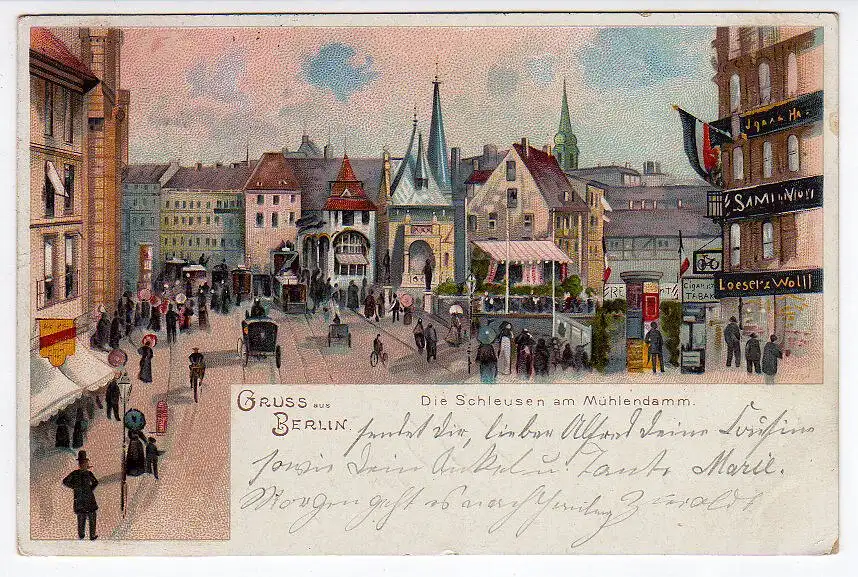 Loeser & Wolff
Cigarren
TABAK
GRUSS aus
BERLIN.
Die Schleusen am Mühlendamm.
sendet Dir, lieber Alfred Deine Cousine
sowie Dein Onkel u. Tante Marie.
Morgen geht es nach